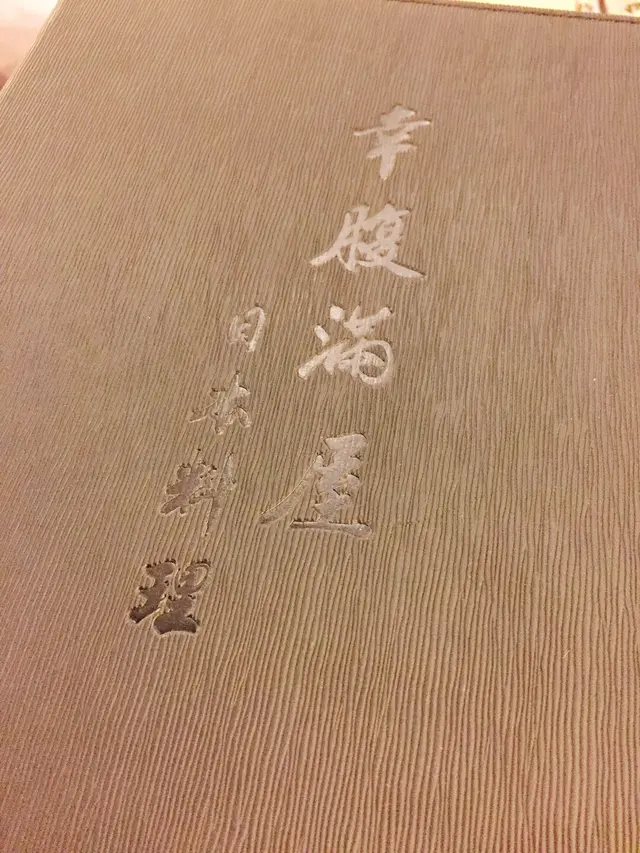 幸腹满屋
日本料理